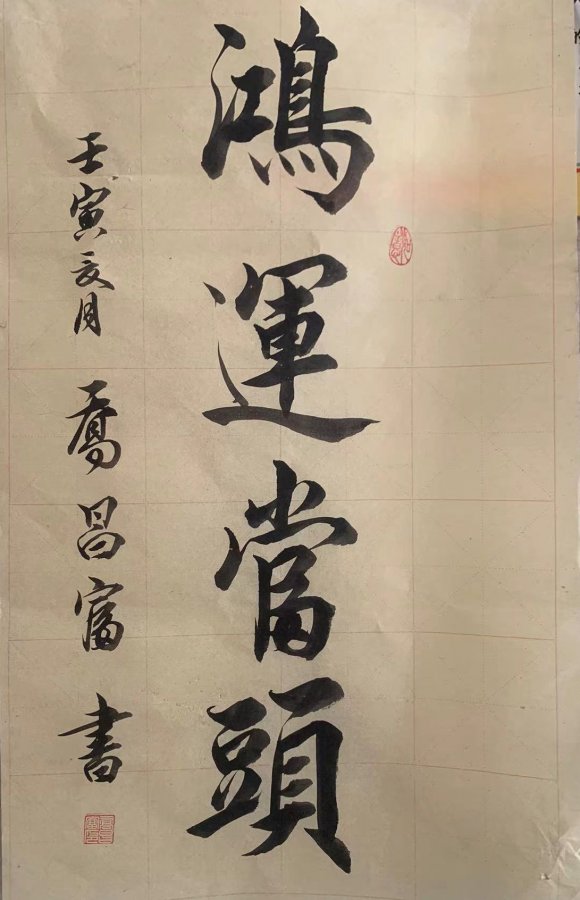 鴻運當頭
壬寅亥月 喬昌富書